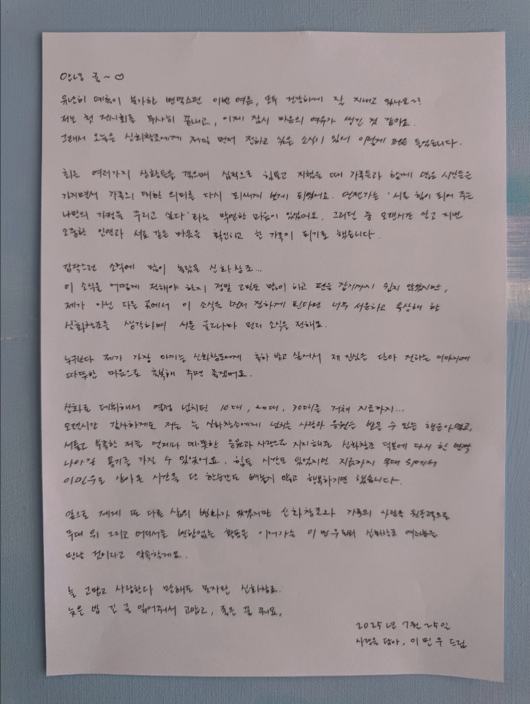 안녕 글~♡
유난히 더위가 복잡한 변덕스런 이번 여름, 모두 건강하게 잘 지내고 있나요~?
저는 첫 전시회를 무사히 끝내고, 이제 잠시 마음의 여유가 생긴 것 같아요.
그래서 오늘은 신화창조에게 제일 먼저 전하고 싶은 소식이 있어 이렇게 펜을 들었습니다.
최근 여러가지 상황들을 겪으며 심적으로 힘들고 지쳤을 때 가족들과 함께 많은 시간들을
가지면서 가족의 대한 의미를 다시 되새기게 되었어요. 언젠가는 '서로 힘이 되어 주는
나만의 가정을 꾸리고 싶다' 라는 막연한 마음이 있었어요. 그러던 중 오랜시간 알고 지낸
소중한 인연과 서로 같은 마음을 확인하고 한 가족이 되기로 했습니다.
갑작스런 소식에 많이 놀랐을 신화창조...
이 소식을 어떻게 전해야 할지 정말 고민도 많이 하고 펜을 잡기까지 쉽지 않았지만,
제가 아닌 다른 곳에서 이 소식을 먼저 전하게 된다면 너무 서운하고 속상해 할
신화창조를 생각하며 서툰 글로나마 먼저 소식을 전해요.
누구보다 제가 가장 아끼는 신화창조에게 축하 받고 싶어서 제 진심을 담아 전하는 이야기에
따뜻한 마음으로 축복해 주면 좋겠어요.
신화로 데뷔해서 열정 넘치던 10대, 20대, 30대를 거쳐 지금까지...
오랜시간 감사하게도 저는 늘 신화창조에게 넘치는 사랑과 응원을 받을 수 있는 행운아였고,
서툴고 부족한 저를 언제나 따뜻한 응원과 사랑으로 지지해준 신화창조 덕분에 다시 한 번 더
나아갈 용기를 가질 수 있었어요. 힘든 시간도 있었지만 지금까지 무대 위에서
이민우로 살아온 시간을 단 한순간도 빼놓지 않고 행복하기만 했습니다.
앞으로 제게 또 다른 삶의 변화가 생겼지만 신화창조와 가족의 사랑을 원동력으로
무대 위 그리고 어디서든 변함없는 활동을 이어가는 이민우로 신화창조 여러분을
만날 것이라고 약속할게요.
늘 고맙고 사랑한다 말해도 모자란 신화창조.
늦은 밤 긴 글 읽어줘서 고맙고, 좋은 꿈 꿔요.
2025년 7월 25일
사랑을 담아, 이민우 드림